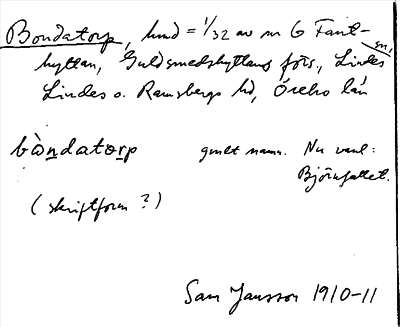 Bondatorp, hmd = 1/32 av nr 6 Fant-
hyttan, Guldsmedshyttans förs., Lindes
sn,
Lindes o. Ramsbergs hd, Örebro län
bò̱ndato̱rp gmlt namn. Nu vanl:
Björnfallet.
(skriftform?)
Sam Jansson 1910-11